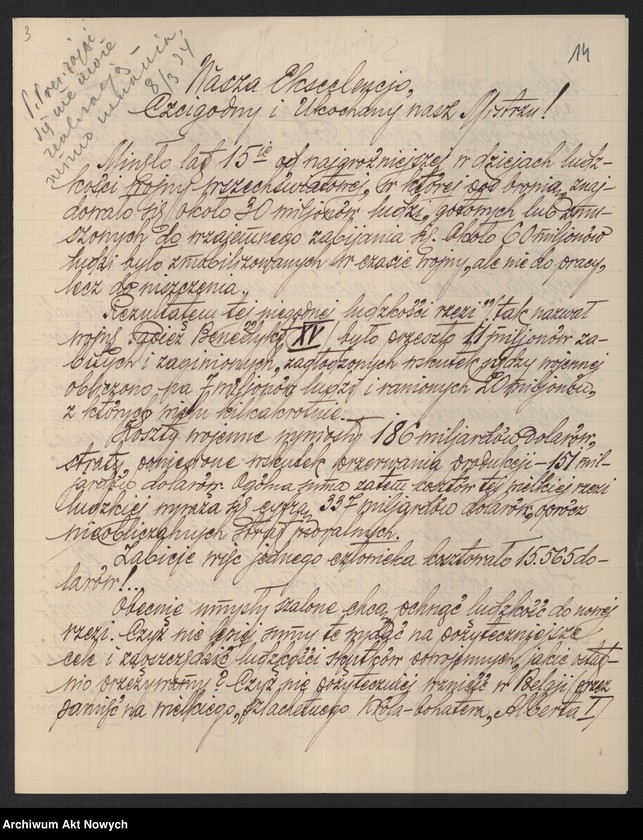 3
14
mimo uznania,
8/3 34
Nasza Ekscelencjo,
Czcigodny i Ukochany nasz Mistrzu!
Minęło lat 15ie od najgroźniejszej w dziejach ludz-
kości wojny wszechświatowej, w której pod bronią znaj-
dowało się około 30 miljonów ludzi, gotowych lub zmu-
szonych do wzajemnego zabijania się. Około 60 miljonów
ludzi było zmobilizowanych w czasie wojny, ale nie do pracy,
lecz do niszczenia.
Rezultatem tej "niegodnej ludzkości rzezi" (tak nazwał
wojnę Papież Benedykt XV) było przeszło 11 miljonów za-
bitych i zaginionych, zagłodzonych wskutek nędzy wojennej
obliczono na 7 miljonów ludzi i ranionych 20 miljonów,
z których wielu kilkakrotnie.
Koszty wojenne wyniosły 186 miljardów dolarów,
straty, poniesione wskutek przerwania produkcji – 151 mil-
jardów dolarów. Ogólna suma zatem kosztów tej wielkiej rzezi
ludzkiej wyraża się cyfrą 337 miljardów dolarów, oprócz
nieobliczalnych strat moralnych.
Zabicie więc jednego człowieka kosztowało 15.565 do-
larów!...
Obecnie umysły szalone chcą pchnąć ludzkość do nowej
rzezi. Czyż nie lepiej sumy te wydać na pożyteczniejsze
cele i zaoszczędzić ludzkości skutków powojennych, jakie ostat-
nio przeżywamy? Czyż nie pożyteczniej wznieść w Belgji (przez
pamięć na wielkiego, szlachetnego Króla-bohatera, Alberta I)
Archiwum Akt Nowych